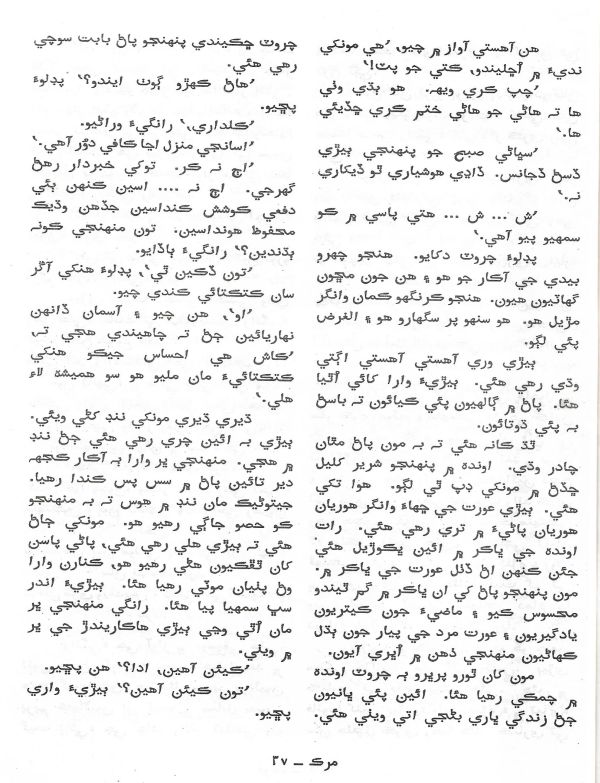 هن آهستي آواز ۾ چيو، ’هي مونکي
نديءَ ۾ اڇليندو، ڪتي جو پٽ!‘
’چپ ڪري ويهه. هو ٻڌي وٺي
ها ته هاڻي جو هاڻي ختم ڪري ڇڏيئي
ها.‘
’سڀاڻي صبح جو پنهنجي ٻيڙي
ڏسڻ ڏجانس. ڏاڍي هوشياري ٿو ڏيکاري
نه.‘
’ش ... ش ... هتي پاسي ۾ ڪو
سمهيو پيو آهي.‘
پڊلوءَ چروٽ دکايو. هنجو چهرو
بيدي جي آڪار جو هو ۽ هن جون مڇون
گهاٽيون هيون. هنجو ڪرنگهو ڪمان وانگر
مڙيل هو. هو سنهو پر سگهارو هو ۽ الغرض
پئي لڳو.
ٻيڙي وري آهستي آهستي اڳتي
وڌي رهي هئي. ٻيڙيءَ وارا کائي اُٿيا
هئا. پاڻ ۾ ڳالهيون پئي ڪيائون ته باسڻ
به پئي ڌوتائون.
ٿڌ ڪانه هئي ته به مون پاڻ مٿان
چادر وڌي. اونده ۾ پنهنجو شرير کليل
ڇڏڻ ۾ مونکي ڊپ ٿي لڳو. هوا تکي
هئي. ٻيڙي عورت جي ڇهاءَ وانگر هوريان
هوريان پاڻيءَ ۾ تري رهي هئي. رات
اونده جي ڀاڪر ۾ ائين ڀڪوڙيل هئي
جئن ڪنهن اڻ ڏٺل عورت جي ڀاڪر ۾.
مون پنهنجو پاڻ کي ان ڀاڪر ۾ گم ٿيندو
محسوس ڪيو ۽ ماضيءَ جون ڪيتريون
يادگيريون ۽ عورت مرد جي پيار جون ٻڌل
ڪهاڻيون منهنجي ذهن ۾ اُڀري آيون.
مون کان ٿورو پريرو ٻه چروٽ اونده
۾ چمڪي رهيا هئا. ائين پئي ڀانيون
ڄڻ زندگي ڀاري بڻجي اتي ويٺي هئي.
چروٽ ڇڪيندي پنهنجو پاڻ بابت سوچي
رهي هئي.
’هاڻ ڪهڙو ڳوٺ ايندو؟‘ پڊلوءَ
پڇيو.
’ڪلداري،‘ رانگيءَ وراڻيو.
’اسانجي منزل اڃا ڪافي دؤر آهي.‘
’اڄ نه ڪر. توکي خبردار رهڻ
گهرجي. اڄ نه .... اسين ڪنهن ٻئي
دفعي ڪوشش ڪنداسين جڏهن وڌيڪ
محفوظ هونداسين. تون منهنجي ڪونه
ٻڌندين؟‘ رانگيءَ ٻاڏايو.
’تون ڏڪين ٿي‘، پڊلوءَ هنکي آڱر
سان ڪتڪتائي ڪندي چيو.
’او‘، هن چيو ۽ آسمان ڏانهن
نهاريائين ڄڻ ته چاهيندي هجي ته،
’ڪاش هي احساس جيڪو هنکي
ڪتڪتائيءَ مان مليو هو سو هميشه لاءِ
هلي.‘
ڌيري ڌيري مونکي ننڊ کڻي ويئي.
ٻيڙي به ائين چري رهي هئي ڄڻ ننڊ
۾ هجي. منهنجي ڀر وارا ٻه آڪار ڪجهه
دير تائين پاڻ ۾ سس پس ڪندا رهيا.
جيتوڻيڪ مان ننڊ ۾ هوس ته به منهنجو
ڪو حصو جاڳي رهيو هو. مونکي ڄاڻ
هئي ته ٻيڙي هلي رهي هئي، پاڻي پاسن
کان ٿڦڪيون هڻي رهيو هو، ڪنارن وارا
وڻ پٺيان موٽي رهيا هئا. ٻيڙيءَ اندر
سڀ سمهيا پيا هئا. رانگي منهنجي ڀر
مان اُٿي وڃي ٻيڙي هاڪاريندڙ جي ڀر
۾ ويٺي.
’ڪيئن آهين، ادا؟‘ هن پڇيو.
’تون ڪيئن آهين؟‘ ٻيڙيءَ واري
پڇيو.
مرڪ ــ ٣٧